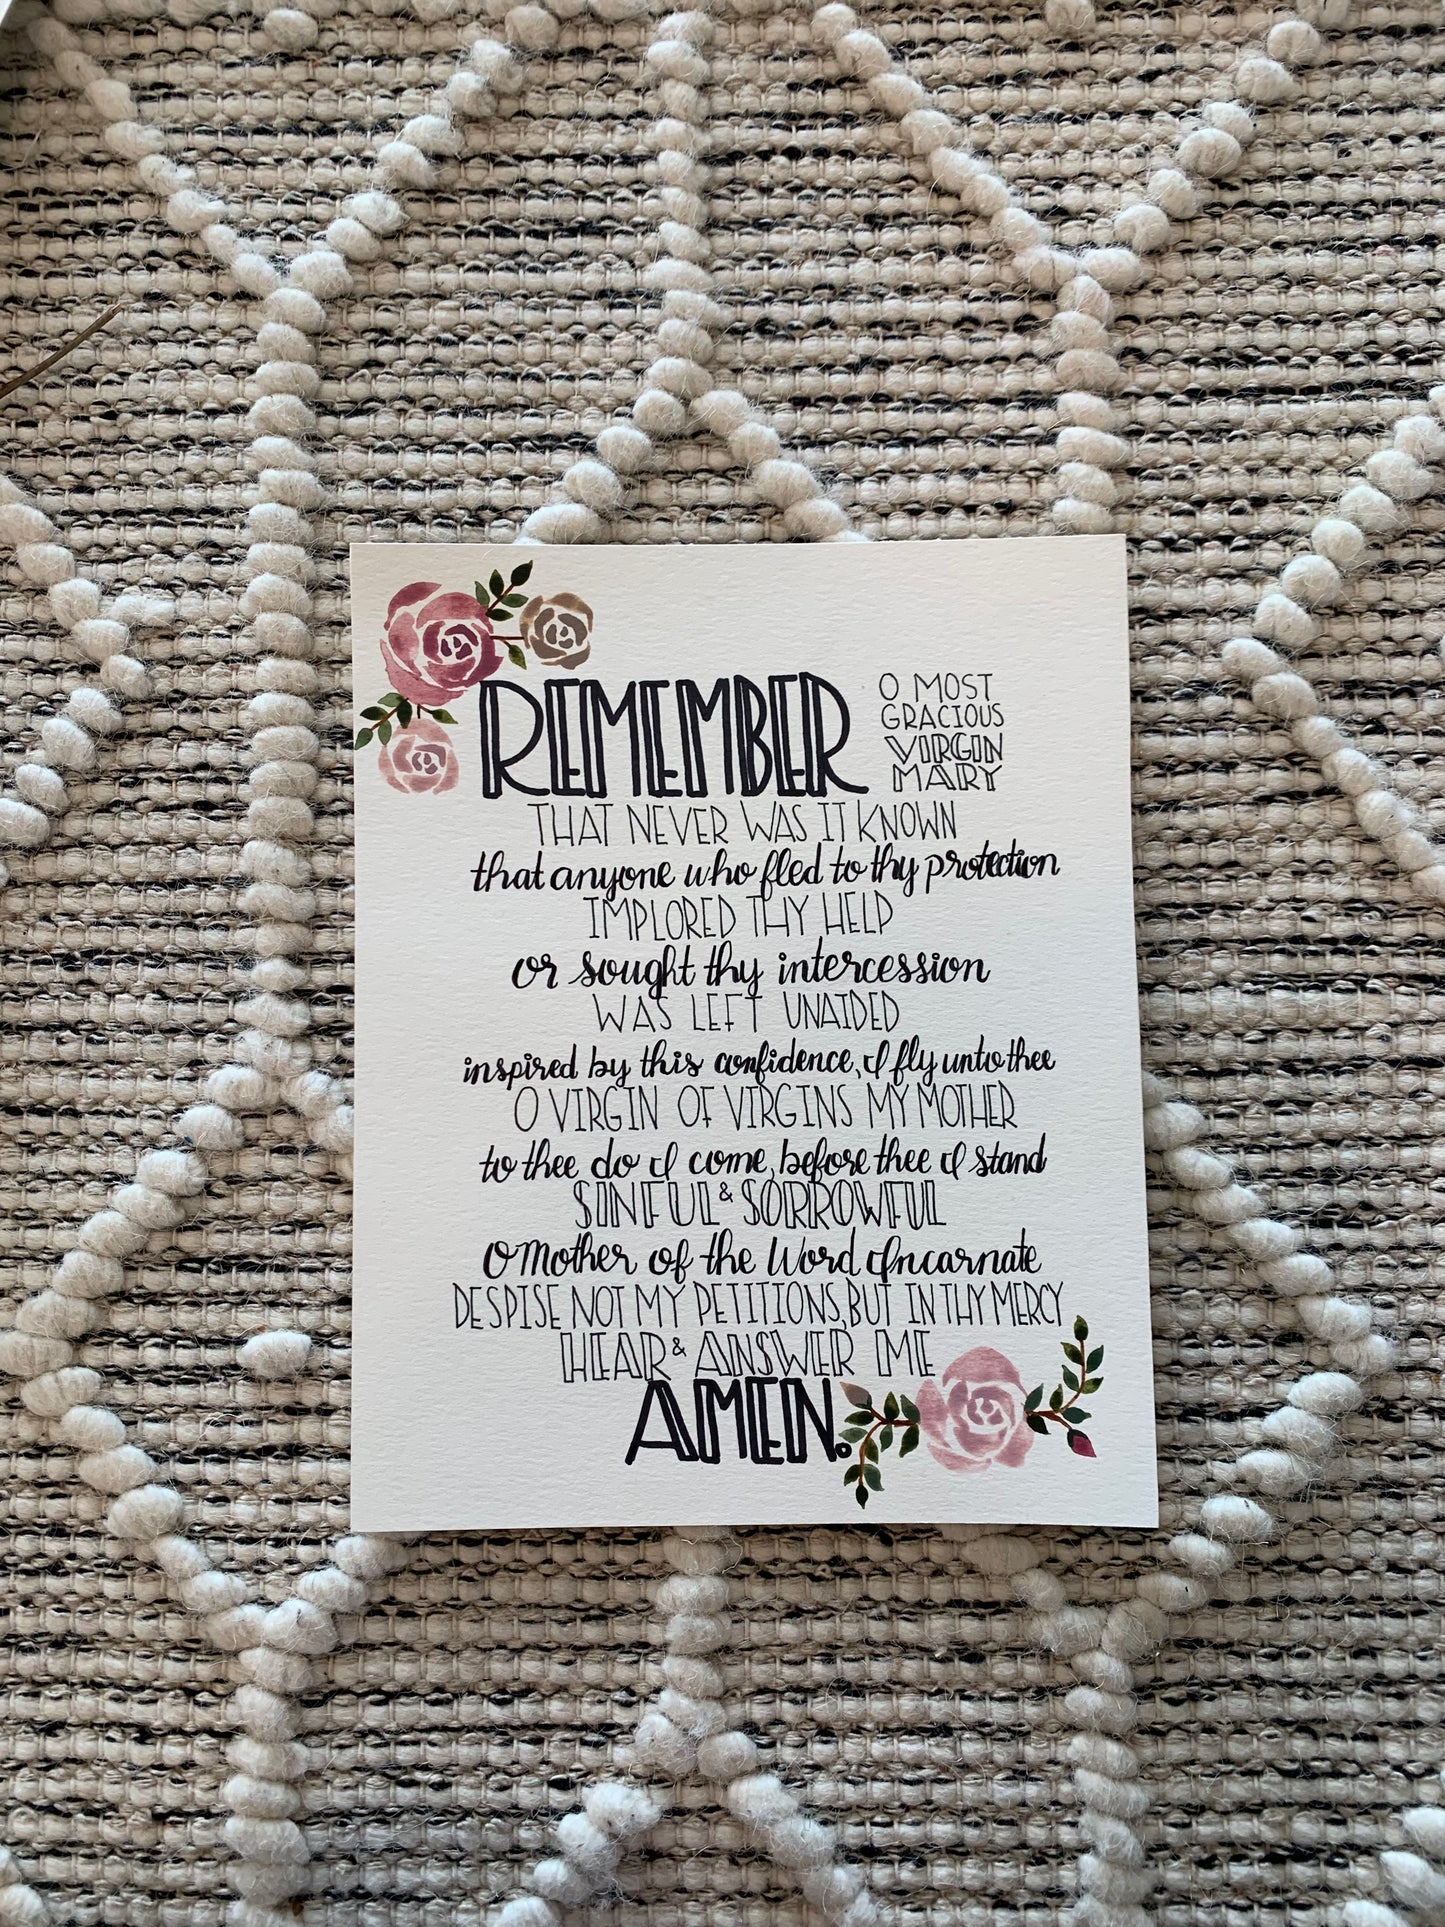 REMEMBER O MOST
GRACIOUS
VIRGIN
MARY
THAT NEVER WAS IT KNOWN
that anyone who fled to thy protection
IMPLORED THY HELP
or sought thy intercession
WAS LEFT UNAIDED
inspired by this confidence, I fly unto thee
O VIRGIN OF VIRGINS MY MOTHER
to thee do I come, before thee I stand
SINFUL & SORROWFUL
O Mother of the Word Incarnate
DESPISE NOT MY PETITIONS, BUT IN THY MERCY
HEAR & ANSWER ME
AMEN.